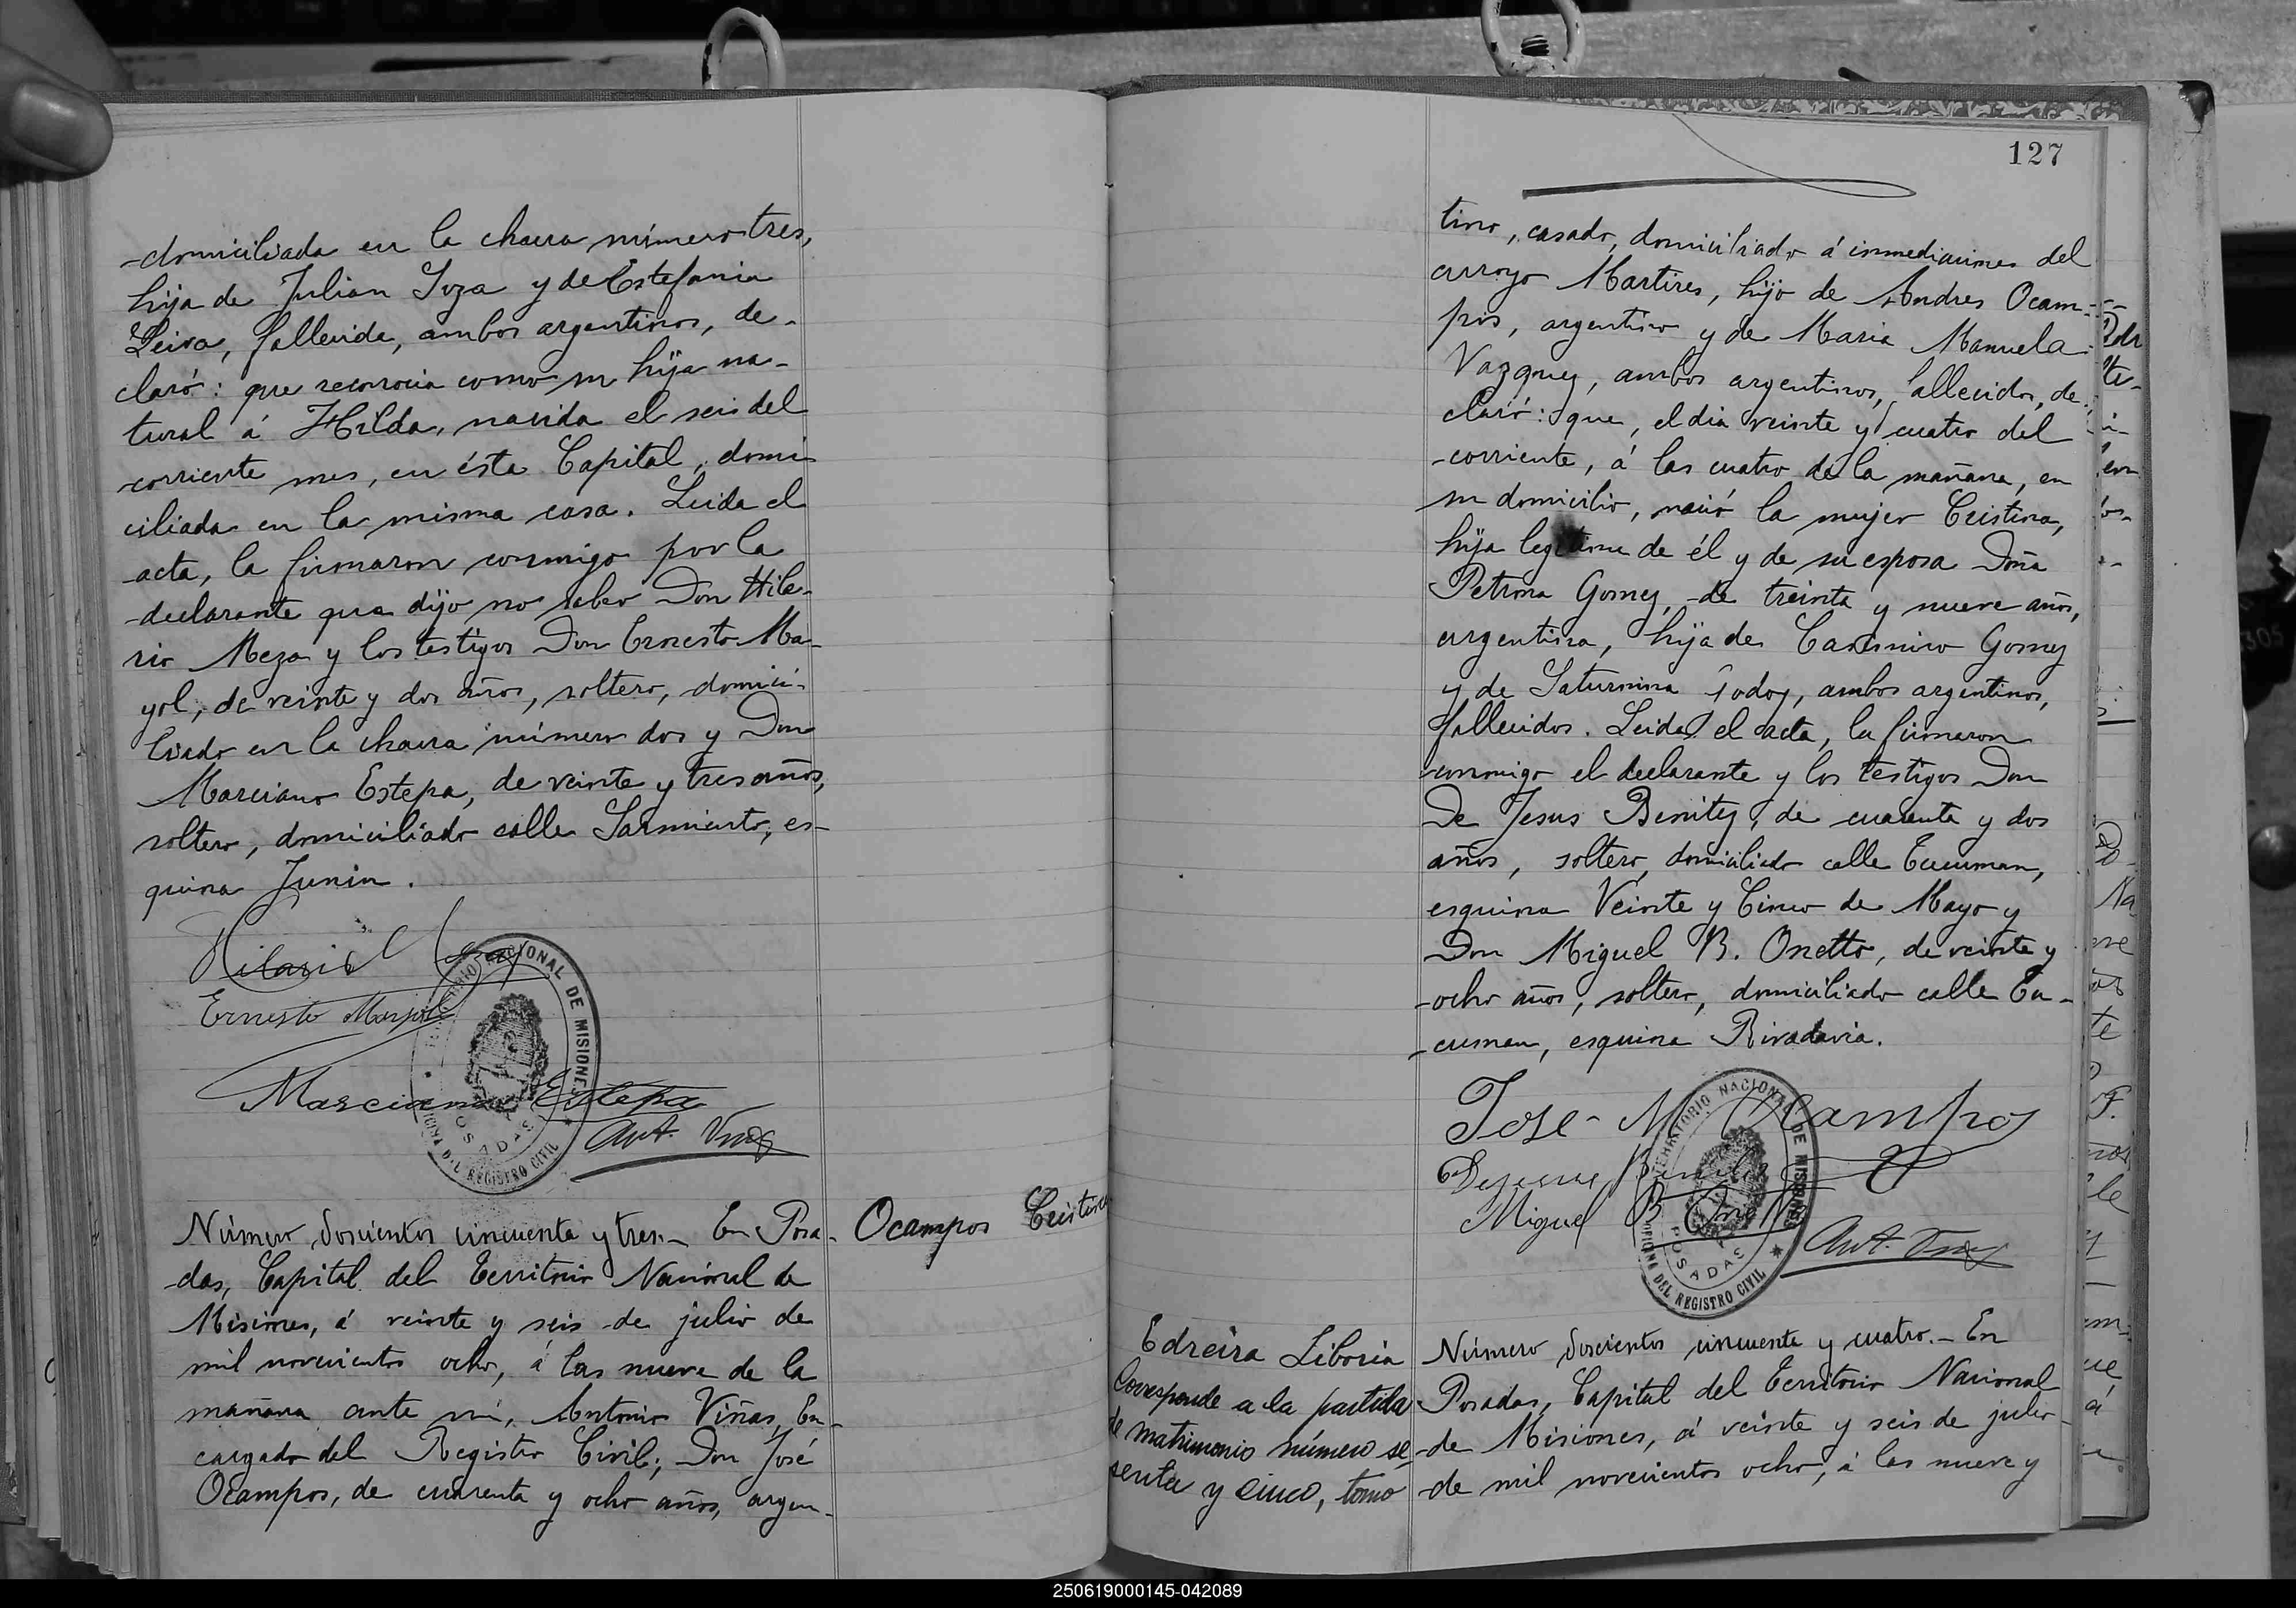 domiciliada en la chacra número tres,
hija de Julian Soza y de Estefania
Leiva, fallecida, ambos argentinos, de-
claró: que reconocia como su hija na-
tural á Hilda, nacida el seis del
corriente mes, en ésta Capital, domi
ciliada en la misma casa. Leida el
acta, la firmaron conmigo por la
declarante que dijo no saber Don Hila-
rio Meza y los testigos Don Ernesto Ma-
yol, de veinte y dos años, soltero, domici-
liado en la chacra número dos y Don
Marciano Estepa, de veinte y tres años,
soltero, domiciliado calle Sarmiento, es-
quina Junin.
Hilario Meza
Ernesto Mayol
Marciano Estepa
Ant. Viñas
TERRITORIO NACIONAL DE MISIONES
POSADAS
OFICINA DEL REGISTRO CIVIL
Ocampos Cristina
Número doscientos cincuenta y tres.- En Posa-
das, Capital del Territorio Nacional de
Misiones, á veinte y seis de julio de
mil novecientos ocho, á las nueve de la
mañana ante mi, Antonio Viñas, En-
cargado del Registro Civil; Don José
Ocampos, de cuarenta y ocho años, argen-
127
tino, casado, domiciliado á inmediaciones del
arroyo Martires, hijo de Andres Ocam-
pos, argentino y de Maria Manuela
Vazquez, ambos argentinos, fallecidos, de-
claró: que, el dia veinte y cuatro del
corriente, á las cuatro de la mañana, en
su domicilio, nació la mujer Cristina,
hija legitima de él y de su esposa Doña
Petrona Gomez, de treinta y nueve años,
argentina, hija de Casimiro Gomez
y de Saturnina Godoy, ambos argentinos,
fallecidos. Leida el acta, la firmaron
conmigo el declarante y los testigos Don
De Jesus Benitez, de cuarenta y dos
años, soltero, domiciliado calle Tucuman,
esquina Veinte y Cinco de Mayo y
Don Miguel B. Onetto, de veinte y
ocho años, soltero, domiciliado calle Tu-
cuman, esquina Rivadavia.
Jose M Ocampos
Dejesus Benitez
Miguel B Onetto
Ant. Viñas
TERRITORIO NACIONAL DE MISIONES
POSADAS
OFICINA DEL REGISTRO CIVIL
Edreira Liboria
Corresponde a la partida
de matrimonio número se-
senta y cinco, tomo
Número doscientos cincuenta y cuatro.- En
Posadas, Capital del Territorio Nacional
de Misiones, á veinte y seis de julio
de mil novecientos ocho, á las nueve y
250619000145-042089